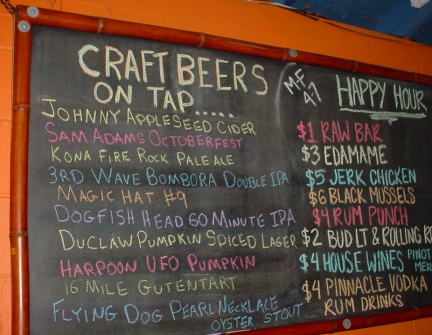 CRAFT BEERS
ON TAP.....
JOHNNY APPLESEED CIDER
SAM ADAMS OCTOBERFEST
KONA FIRE ROCK PALE ALE
3RD WAVE BOMBORA DOUBLE IPA
MAGIC HAT #9
DOGFISH HEAD 60 MINUTE IPA
DUCLAW PUMPKIN SPICED LAGER
HARPOON UFO PUMPKIN
16 MILE GUTENTART
FLYING DOG PEARL NECKLACE
OYSTER STOUT
M-F
4-7
HAPPY HOUR
$1 RAW BAR
$3 EDAMAME
$5 JERK CHICKEN
$6 BLACK MUSSELS
$4 RUM PUNCH
$2 BUD LT & ROLLING R
$4 HOUSE WINES PINOT
MER
$4 PINNACLE VODKA
RUM DRINKS